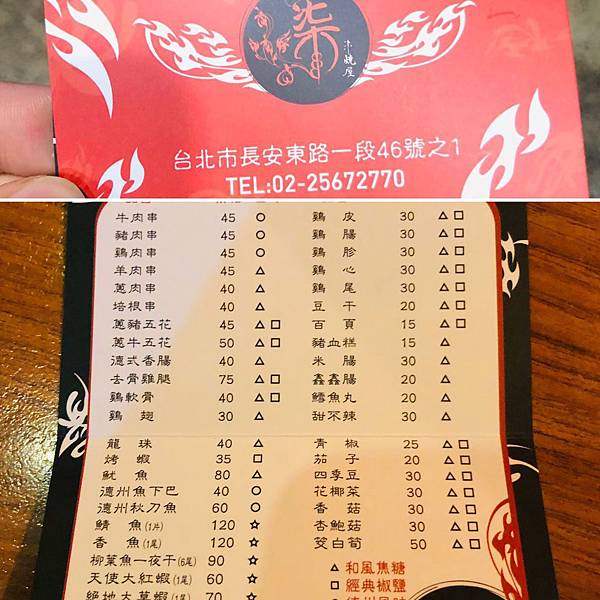 柒
柒燒屋
台北市長安東路一段46號之1
TEL:02-25672770
牛肉串 45 ○
豬肉串 45 ○
鷄肉串 45 ○
羊肉串 45 △
蔥肉串 40 △
培根串 40 △
蔥豬五花 45 △□
蔥牛五花 50 △□
德式香腸 40 △
去骨雞腿 75 △□
鷄軟骨 40 △□
鷄翅 30 △
鷄皮 30 △□
鷄腸 30 △□
鷄胗 30 △□
鷄心 30 △□
鷄尾 30 △□
豆干 20 △□
百頁 15 △□
豬血糕 15 △
米腸 30 △
鑫鑫腸 20 △
鱈魚丸 20 △
甜不辣 30 △
龍珠 40 △
烤蝦 35 □
魷魚 80 △
德州魚下巴 40 ○
德州秋刀魚 60 ○
鯖魚(1片) 120 ☆
香魚(1尾) 120 ☆
柳葉魚一夜干(6尾) 90 ☆
天使大紅蝦(1尾) 60 ☆
絕地大草蝦(1尾) 70 ☆
青椒 25 △□
茄子 20 △□
四季豆 30 △□
花椰菜 30 △□
香菇 30 △□
杏鮑菇 30 △□
筊白筍 50 △□
△和風焦糖
□經典椒鹽
○德州風味